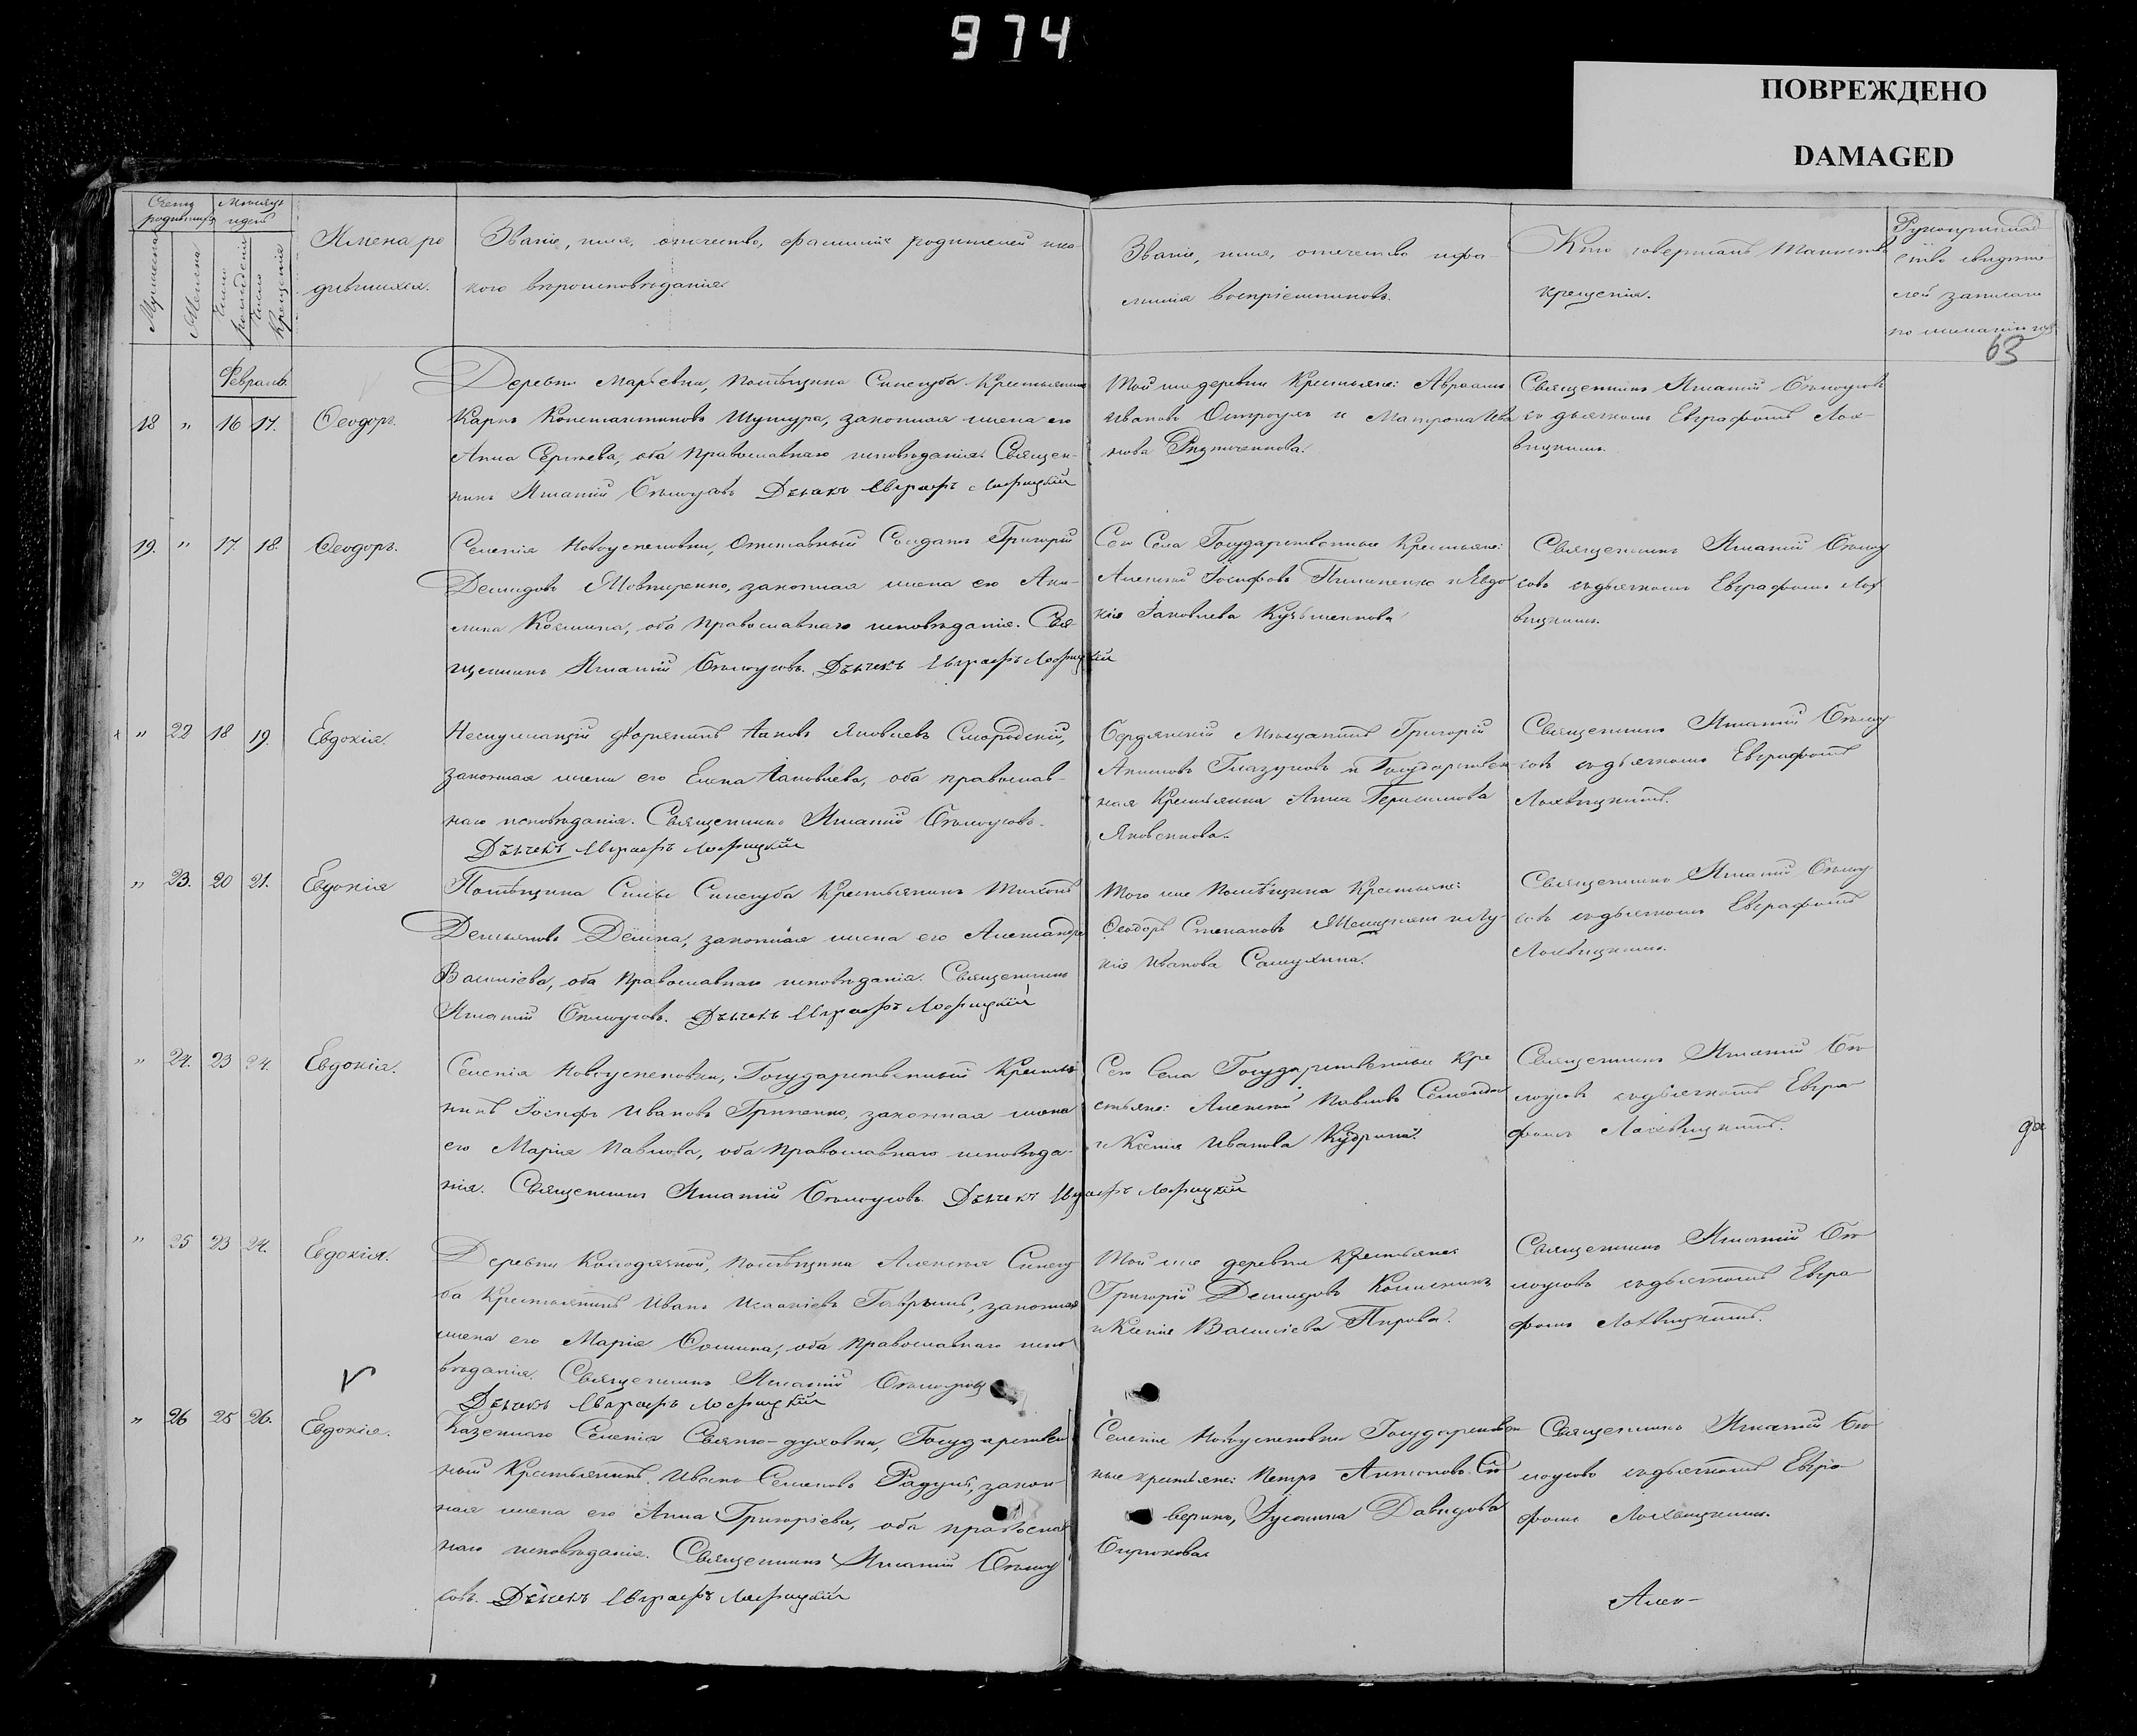 974
ПОВРЕЖДЕНО
DAMAGED
Счетъ родившихся
Мѣсяцъ и день
Мужеска
Женска
Число рожденія
Число Крещенія
Имена ро
дившихся.
Званіе, имя, отечество, фамилія родителей и ка-
кого вѣроисповѣданія.
Званіе, имя, отечество и фа-
милія воспріемниковъ.
Кто совершалъ Таинство
крещенія.
Рукоприклад
ство свидѣте
лей записи
по желанію
63
Февраль.
18 " 16 17. Ѳеодоръ.
Деревни Марьевки, помѣщика Синегуба Крестьянинъ
Карпъ Константиновъ Шутура, законная жена его
Анна Сергѣева, оба православнаго исповѣданія. Священ-
никъ Игнатій Бѣлоусовъ Дьячекъ Евграфъ Лохвицкій
Той же деревни Крестьяне: Авраамъ
Ивановъ и Матрона Ива
нова
Священникъ Игнатій Бѣлоусовъ
съ дьячкомъ Евграфомъ Лох-
вицкимъ.
19. " 17. 18. Ѳеодоръ.
Селенія Новоуспеновки, Отставный Солдатъ Григорій
Демидовъ законная жена его Аки-
лина Козмина, оба православнаго исповѣданія. Свя-
щенникъ Игнатій Бѣлоусовъ. Дьячекъ Евграфъ Лохвицкій
Сего Села Государственные Крестьяне:
Алексій Іосифовъ Пилипенко и Евдо
кія Іаковлева Кузьменкова
Священникъ Игнатій Бѣлоу
совъ съ дьячкомъ Евграфомъ Лох
вицкимъ.
" 22 18 19. Евдокія.
Неслужащій дворянинъ Іаковъ Яковлевъ Смородскій,
законная жена его Елена Іаковлева, оба православ-
наго исповѣданія. Священникъ Игнатій Бѣлоусовъ.
Дьячекъ Евграфъ Лохвицкій
Бердянскій Мѣщанинъ Григорій
Акимовъ Глазуновъ и Государствен
ная Крестьянка Анна Герасимова
Яковенкова.
Священникъ Игнатій Бѣлоу
совъ съ дьячкомъ Евграфомъ
Лохвицкимъ.
" 23. 20 21. Евдокія
Помѣщика Силы Синегуба Крестьянинъ Тихонъ
Демьяновъ Дёмка, законная жена его Александра
Василіева, оба православнаго исповѣданія. Священникъ
Игнатій Бѣлоусовъ. Дьячекъ Евграфъ Лохвицкій
Того же помѣщика Крестьяне:
Ѳеодоръ Степановъ и Лу-
кія Иванова Самухина.
Священникъ Игнатій Бѣлоу
совъ съ дьячкомъ Евграфомъ
Лохвицкимъ.
" 24. 23 24. Евдокія.
Селенія Новоуспеновки, Государственный Крестья
нинъ Іосифъ Ивановъ Гриненко, законная жена
его Марія Павлова, оба православнаго исповѣда-
нія. Священникъ Игнатій Бѣлоусовъ. Дьячекъ Евграфъ Лохвицкій
Сего Села Государственные Кре
стьяне: Алексій Павловъ
и Ксенія Иванова Кудрина.
Священникъ Игнатій Бѣ
лоусовъ съ дьячкомъ Евгра-
фомъ Лохвицкимъ.
" 25 23 24. Евдокія.
Деревни Колодязной, помѣщика Алексія Синегу
ба Крестьянинъ Иванъ Исаакіевъ законная
жена его Марія Ѳомина, оба православнаго испо
вѣданія. Священникъ Игнатій Бѣлоусовъ
Дьячекъ Евграфъ Лохвицкій
Той же деревни Крестьяне:
Григорій Демидовъ
и Ксенія Василіева
Священникъ Игнатій Бѣ
лоусовъ съ дьячкомъ Евгра-
фомъ Лохвицкимъ.
" 26 25 26. Евдокія.
Казеннаго Селенія Свято-духовки, Государствен
ный Крестьянинъ Иванъ Семеновъ Радуль, закон-
ная жена его Анна Григоріева, оба православ
наго исповѣданія. Священникъ Игнатій Бѣлоу
совъ. Дьячекъ Евграфъ Лохвицкій
Селенія Новоуспеновки Государствен
ные крестьяне: Петръ Антоновъ Си
веринъ, Іустина Давидова
Бирюкова.
Священникъ Игнатій Бѣ
лоусовъ съ дьячкомъ Евгра-
фомъ Лохвицкимъ.
Алек-